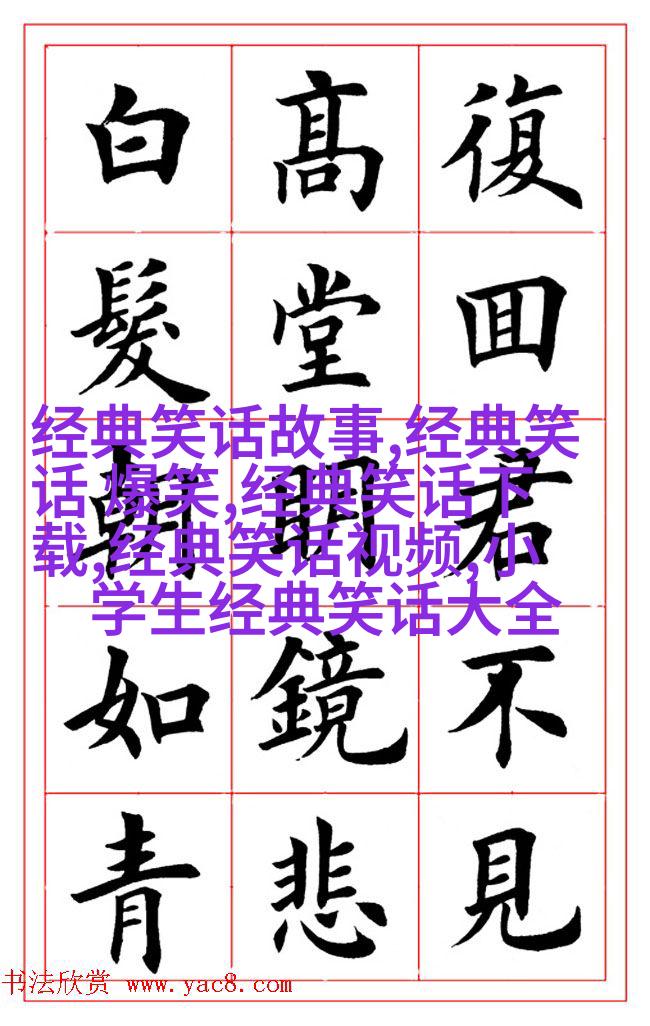 復囬君不見
髙堂明鏡悲
白髮朝如青
经典笑话故事,经典笑
话 爆笑,经典笑话下
载,经典笑话视频,小
学生经典笑话大全
书法欣赏 www.yac8.com